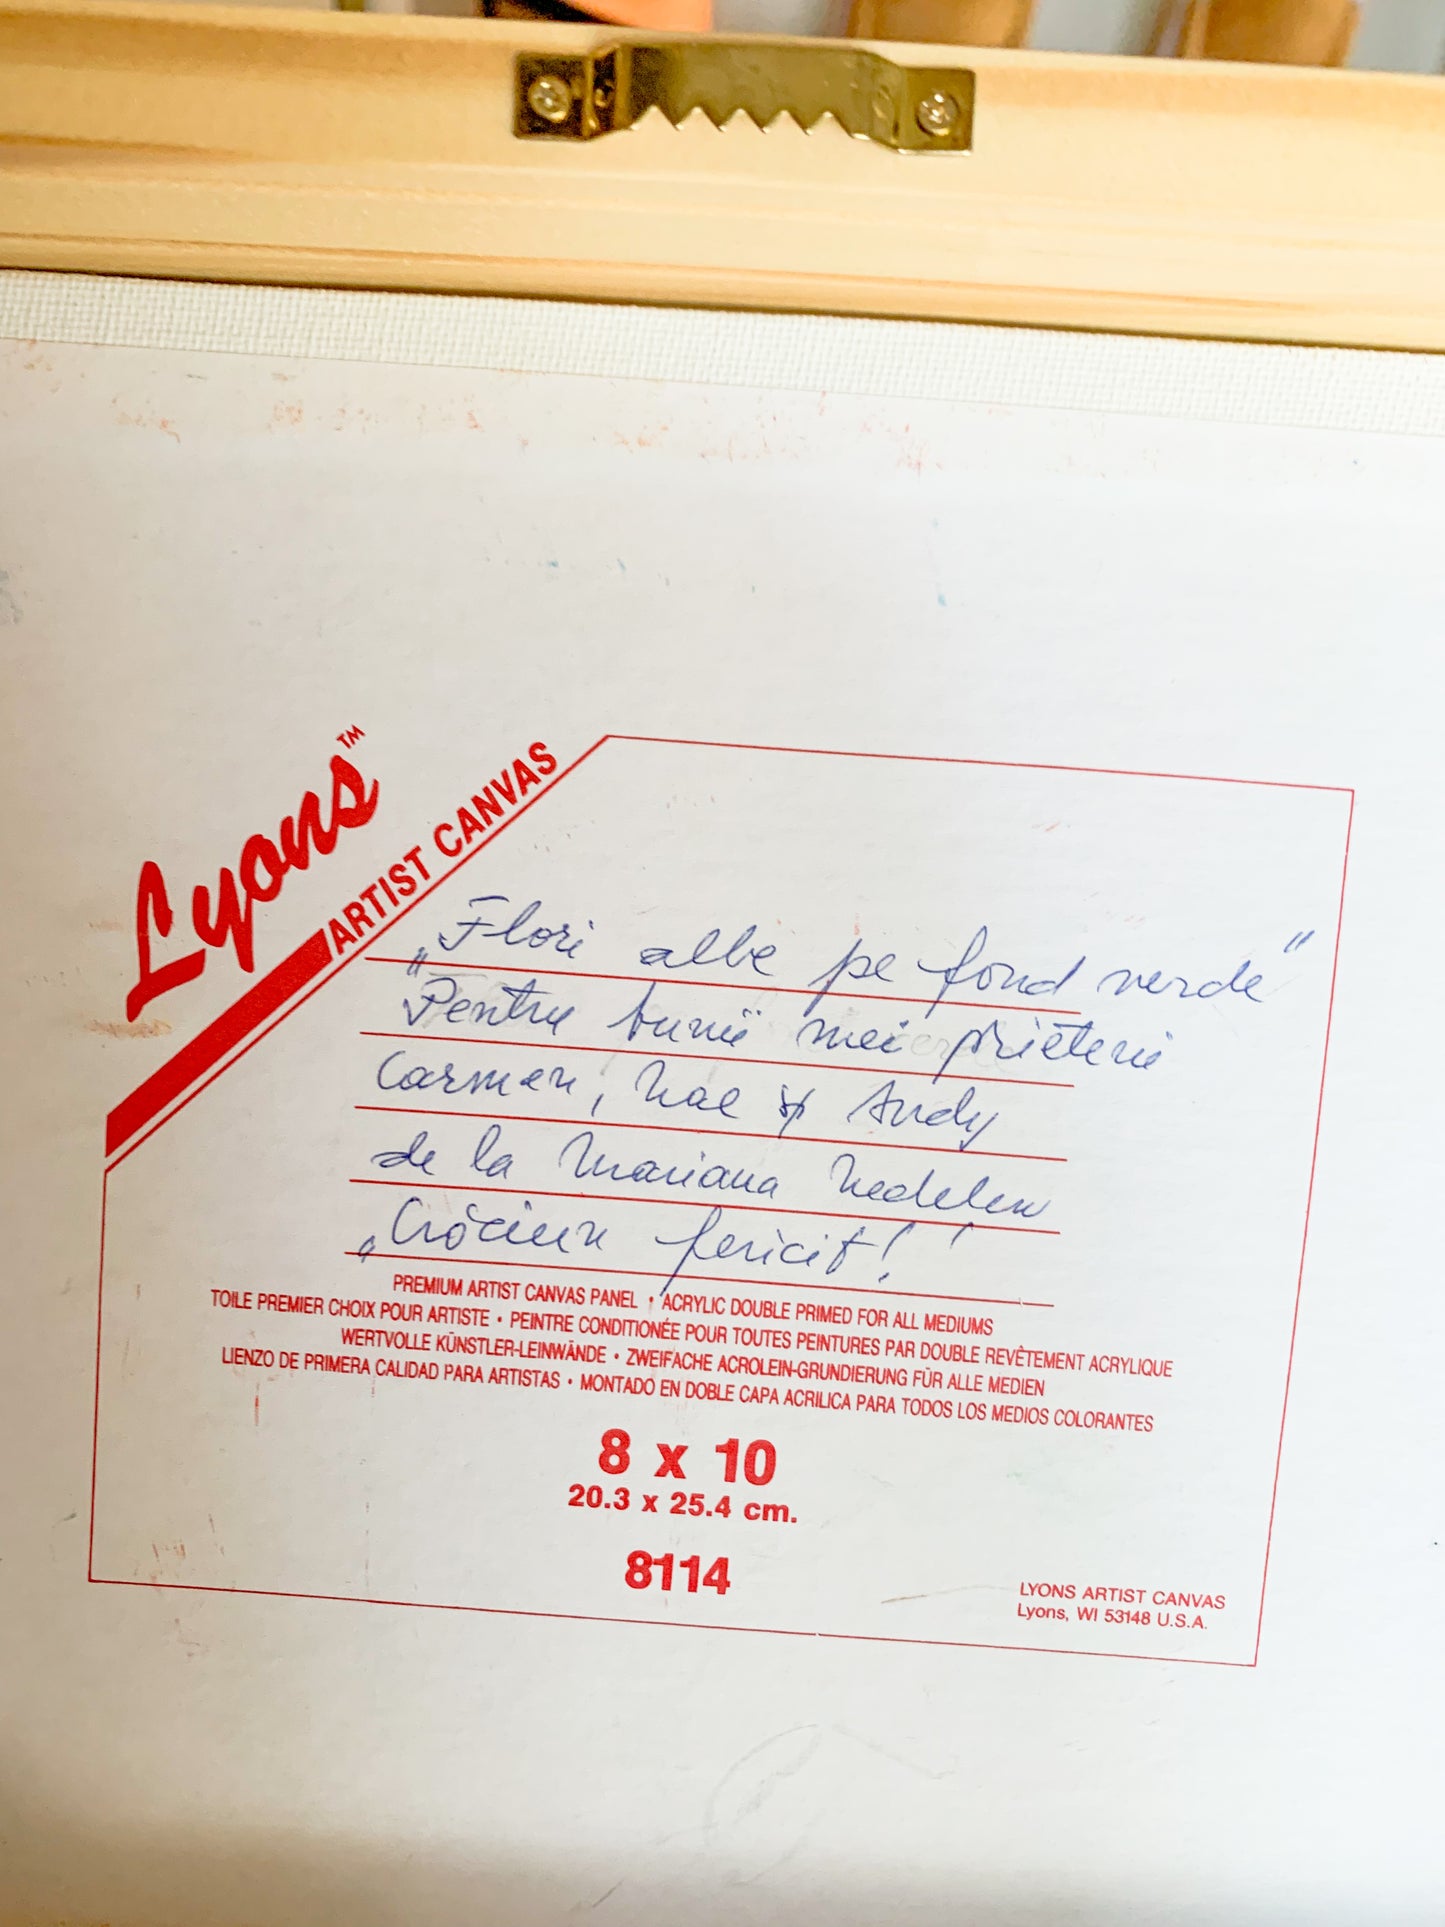 Lyons™
ARTIST CANVAS
„Flori albe pe fond verde"
Pentru bunii mei prieteni
Carmen, Nae și Andy
de la Mariana Nedelcu
„Crăciun fericit!"
PREMIUM ARTIST CANVAS PANEL • ACRYLIC DOUBLE PRIMED FOR ALL MEDIUMS
TOILE PREMIER CHOIX POUR ARTISTE • PEINTRE CONDITIONÉE POUR TOUTES PEINTURES PAR DOUBLE REVÊTEMENT ACRYLIQUE
WERTVOLLE KÜNSTLER-LEINWÄNDE • ZWEIFACHE ACROLEIN-GRUNDIERUNG FÜR ALLE MEDIEN
LIENZO DE PRIMERA CALIDAD PARA ARTISTAS • MONTADO EN DOBLE CAPA ACRILICA PARA TODOS LOS MEDIOS COLORANTES
8 x 10
20.3 x 25.4 cm.
8114
LYONS ARTIST CANVAS
Lyons, WI 53148 U.S.A.